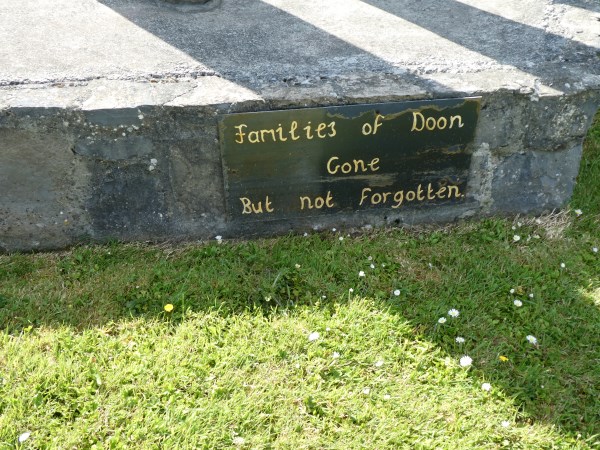 Families of Doon
Gone
But not Forgotten.